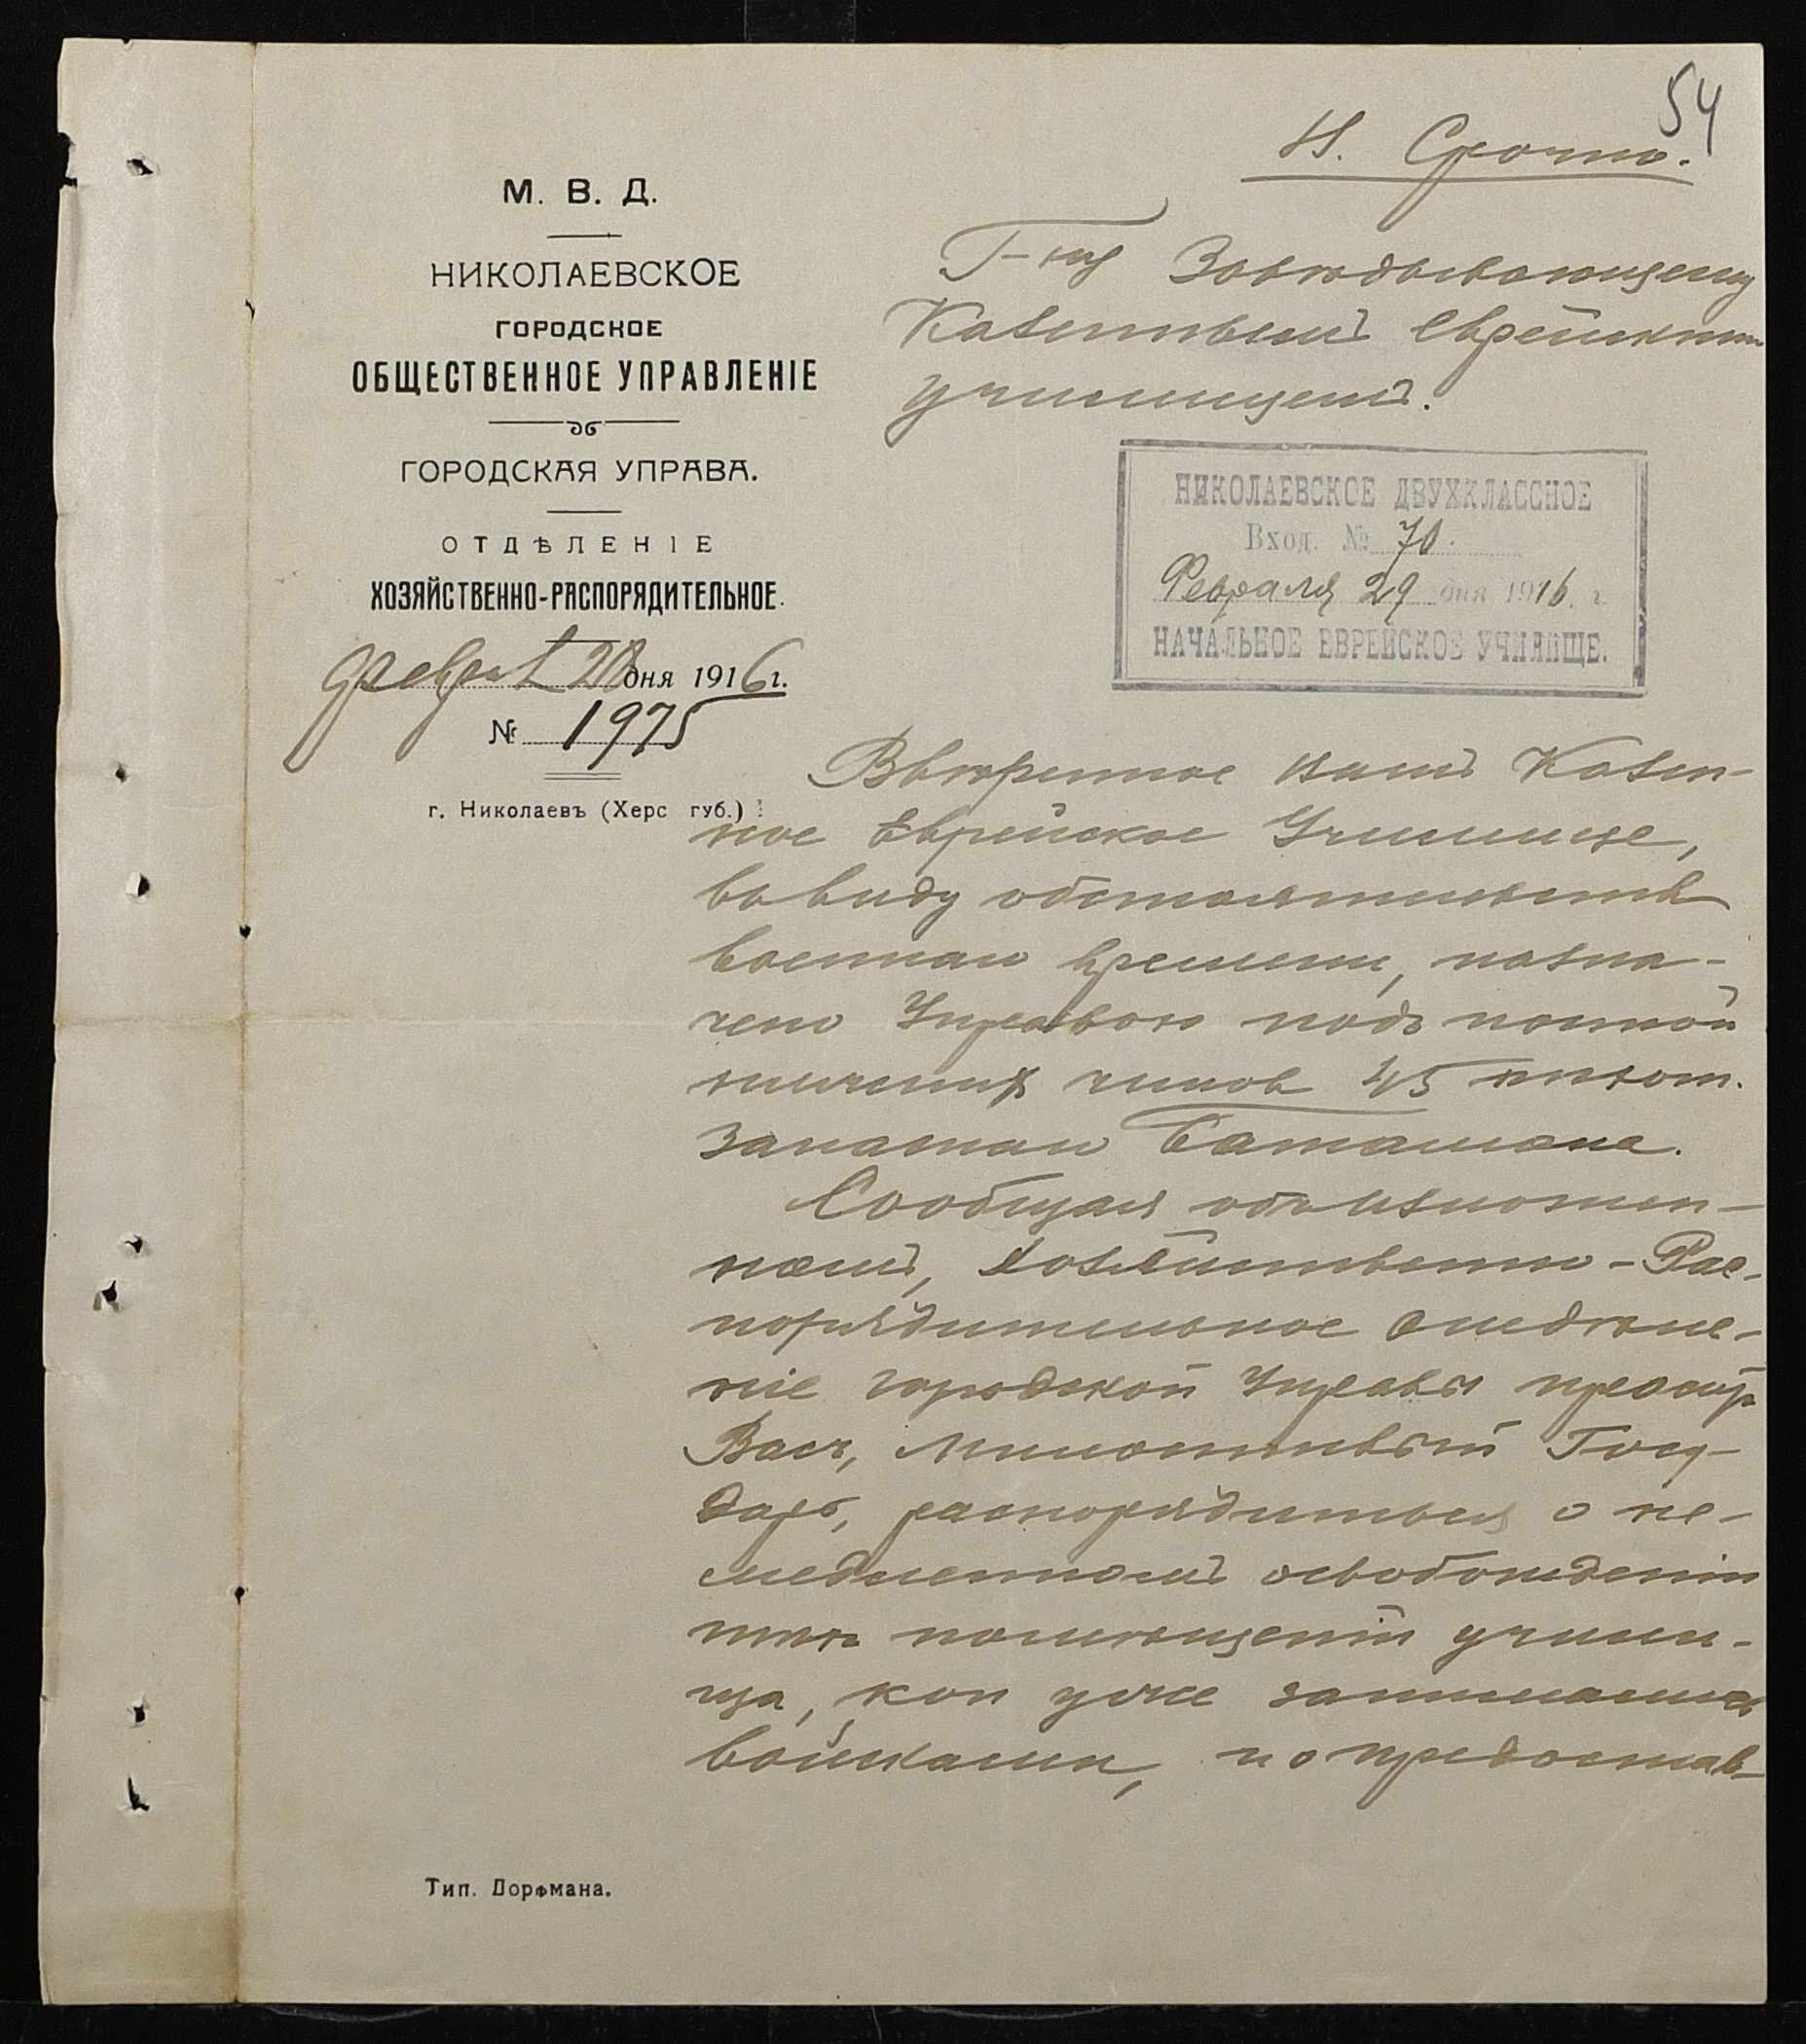 54
Н. Срочно.
М. В. Д.
НИКОЛАЕВСКОЕ
ГОРОДСКОЕ
ОБЩЕСТВЕННОЕ УПРАВЛЕНІЕ
ГОРОДСКАЯ УПРАВА.
ОТДѢЛЕНІЕ
ХОЗЯЙСТВЕННО-РАСПОРЯДИТЕЛЬНОЕ.
дня 1916 г.
№ 1975
г. Николаевъ (Херс губ.)
Г-ну Завѣдывающему
Казеннымъ Еврейским
училищемъ.
НИКОЛАЕВСКОЕ ДВУХКЛАССНОЕ
Вход. № 70.
Февраля 29 дня 1916 г.
НАЧАЛЬНОЕ ЕВРЕЙСКОЕ УЧИЛИЩЕ.
Ввѣренное Вамъ Казен-
ное Еврейское Училище,
въ виду обстоятельствъ
военнаго времени, назна-
чено Управою подъ постой
нижнихъ чиновъ 45 пѣхот.
запаснаго баталіона.
Сообщая объ изложен-
номъ, Хозяйственно-Рас-
порядительное Отдѣле-
ніе Городской Управы проситъ
Васъ, Милостивый Госу-
дарь, распорядиться о не-
медленномъ освобожденіи
тѣхъ помѣщеній учили-
ща, кои уже занимались
войсками, и о предостав-
Тип. Дорфмана.